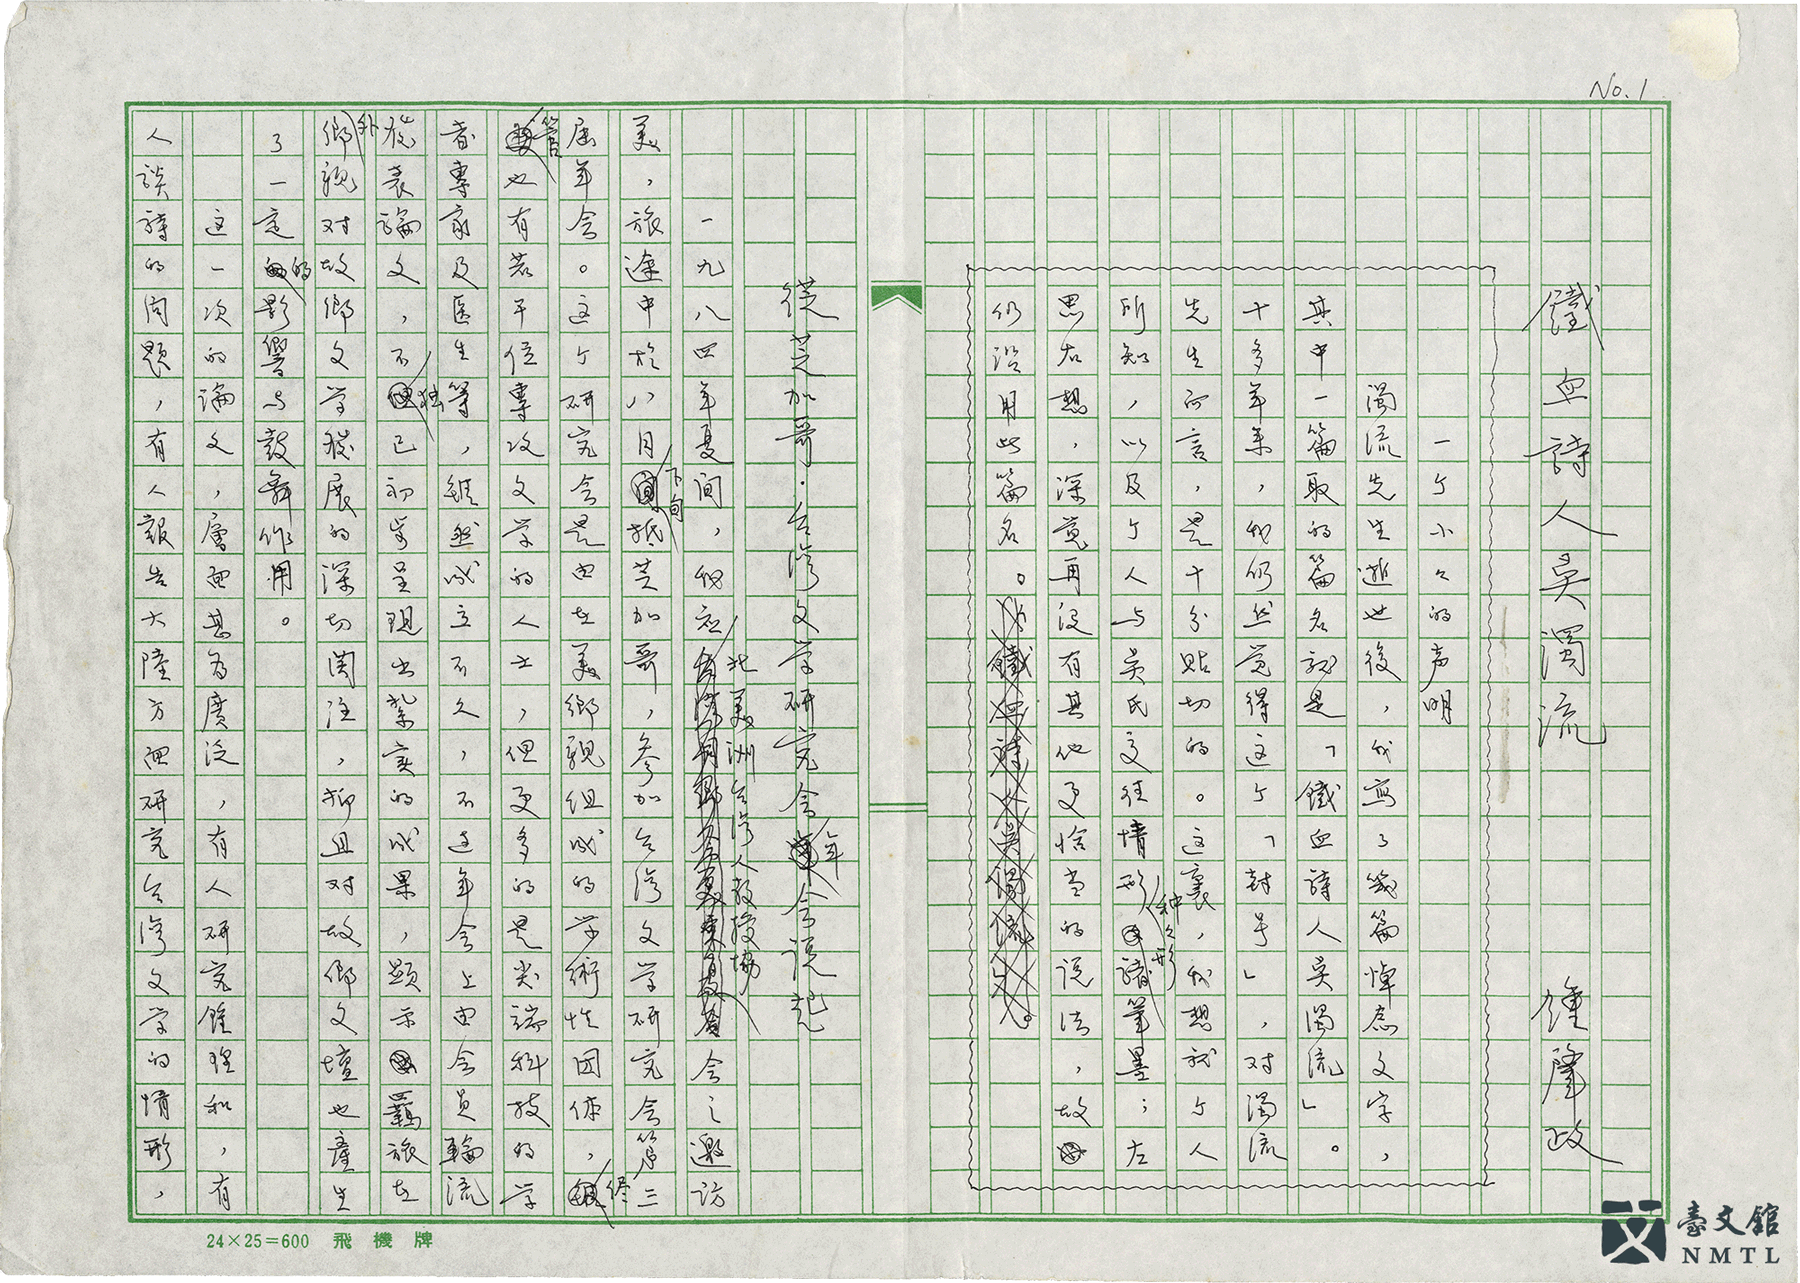 No. 1
鐵血詩人吳濁流　鍾肇政
一个小々的声明
濁流先生逝世後，我寫了幾篇悼念文字，
其中一篇取的篇名就是「鐵血詩人吳濁流」。
十多年來，我仍然觉得这个「封号」，对濁流
先生而言，是十分貼切的。这裏，我想就个人
所知，以及个人与吳氏交往情形种々形諸筆墨；左
思右想，深觉再没有其他更恰当的说法，故
仍沿用此篇名。
從芝加哥·台湾文学研究会年会说起
一九八四年夏间，我应北美洲台湾人教授協会之邀訪
美，旅途中於八月下旬抵芝加哥，參加台湾文学研究会第三
屆年会。这个研究会是由在美鄉親组成的学術性团体，儘
管也有若干位專攻文学的人士，但更多的是尖端科技的学
者專家及医生等，縱然成立不久，不过年会上由会員輪流
發表論文，不独已初步呈現出紮实的成果，顕示羈旅在
外鄉親对故鄉文学發展的深切関注，抑且对故鄉文壇也產生
了一定的影響与鼓舞作用。
这一次的論文，層面甚為廣泛，有人研究鍾理和，有
人談詩的问題，有人報告大陸方面研究台湾文学的情形，
24×25=600 飛機牌
臺文館
NMTL